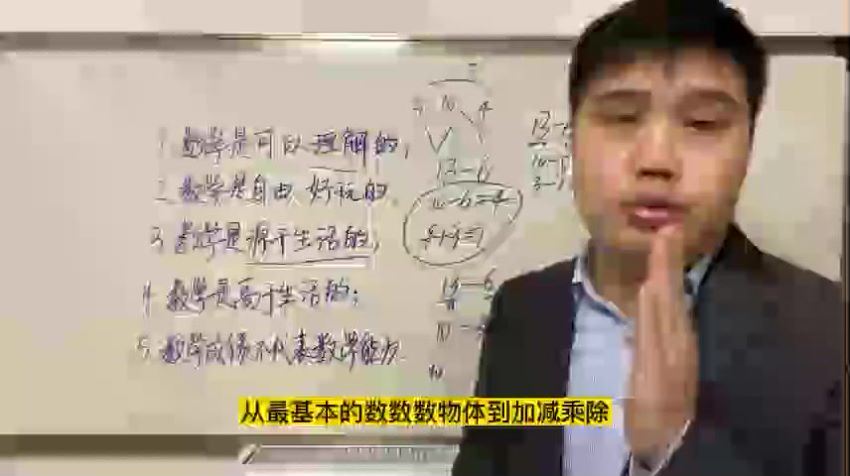 1. 数学是可以理解的;
2. 数学是自由、好玩的.
3. 数学是源于生活的;
4. 数学是高于生活的;
5. 数学成绩不代表数学能力.
10 4
13-6
10-6=4
4+3=7
13-6
10
从最基本的数数数物体到加减乘除